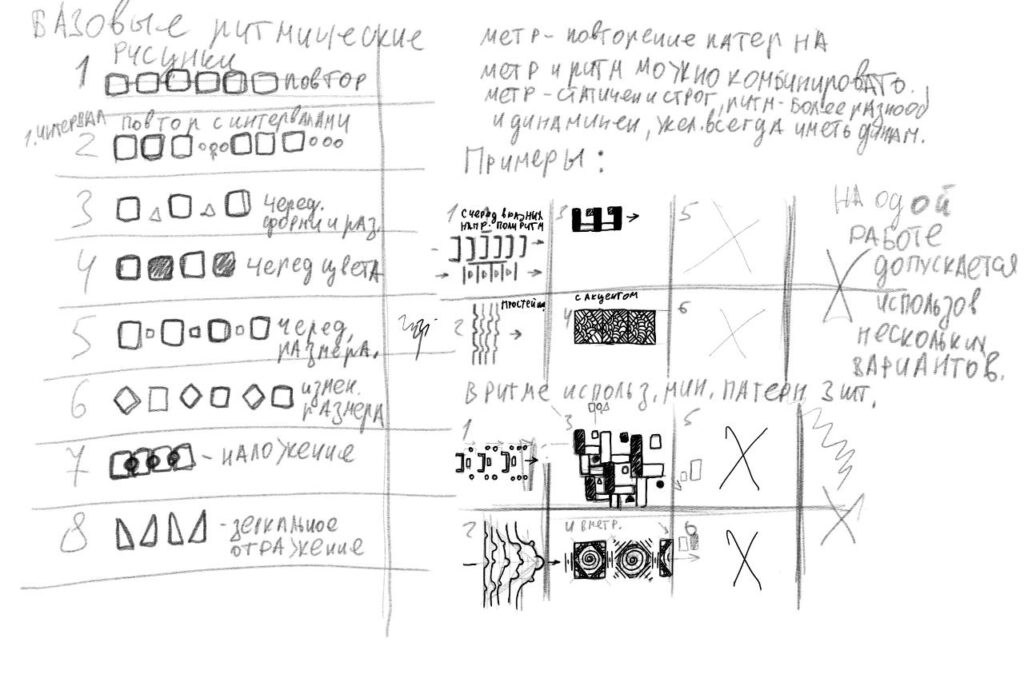 БАЗОВЫЕ РИТМИЧЕСКИЕ
РИСУНКИ
1 ПОВТОР
1. ИНТЕРВАЛ
ПОВТОР С ИНТЕРВАЛАМИ
2
3 ЧЕРЕД.
ФОРМЫ И РАЗ.
4 ЧЕРЕД ЦВЕТА
5 ЧЕРЕД,
РАЗМЕРА.
6 ИЗМЕН.
РАЗМЕРА
7 - НАЛОЖЕНИЕ
8 - ЗЕРКАЛЬНОЕ
ОТРАЖЕНИЕ
МЕТР - ПОВТОРЕНИЕ ПАТЕРНА
МЕТР И РИТМ МОЖНО КОМБИНИРОВАТЬ.
МЕТР - СТАТИЧЕН И СТРОГ, РИТМ - БОЛЕЕ РАЗНООБ
И ДИНАМИЧЕН, ЖЕЛ. ВСЕГДА ИМЕТЬ ДИНАМ.
ПРИМЕРЫ:
1 С ЧЕРЕД В РАЗНЫХ
НАПР. ПОЛИРИТМ
3
5
2 ПРОСТЕЙШ
С АКЦЕНТОМ
4
6
НА ОДОЙ
РАБОТЕ
ДОПУСКАЕТСЯ
ИСПОЛЬЗОВ
НЕСКОЛЬКИХ
ВАРИАНТОВ.
В РИТМЕ ИСПОЛЬЗ, МИН. ПАТЕРН 3 ШТ.
1
3
5
2
И В МЕТР.
6